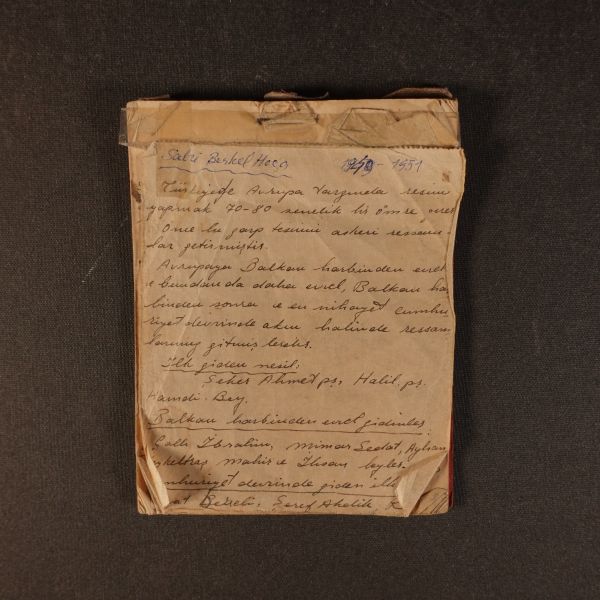 Sabri Berkel Hoca 1949-1951
Türkiyede Avrupa tarzında resim
yapmak 70-80 senelik bir ömre
Ome bu garp resmini askeri ressam-
lar getirmiştir.
Avrupaya Balkan harbinden evvel
bundan da daha evvel, Balkan har
binden sonra e en nihayet cumhu
riyet devrinde akın halinde ressam
larımız gitmişlerdir.
İlk giden nesil:
Şeker Ahmet pş, Halil pş,
Hamdi Bey,
Balkan harbinden evvel gidenler
Çallı İbrahim, mimar Sedat, Ayhan
heykeltraş mahir e İhsan beyler
cumhuriyet devrinde giden ilk
at Şeref Akdik,